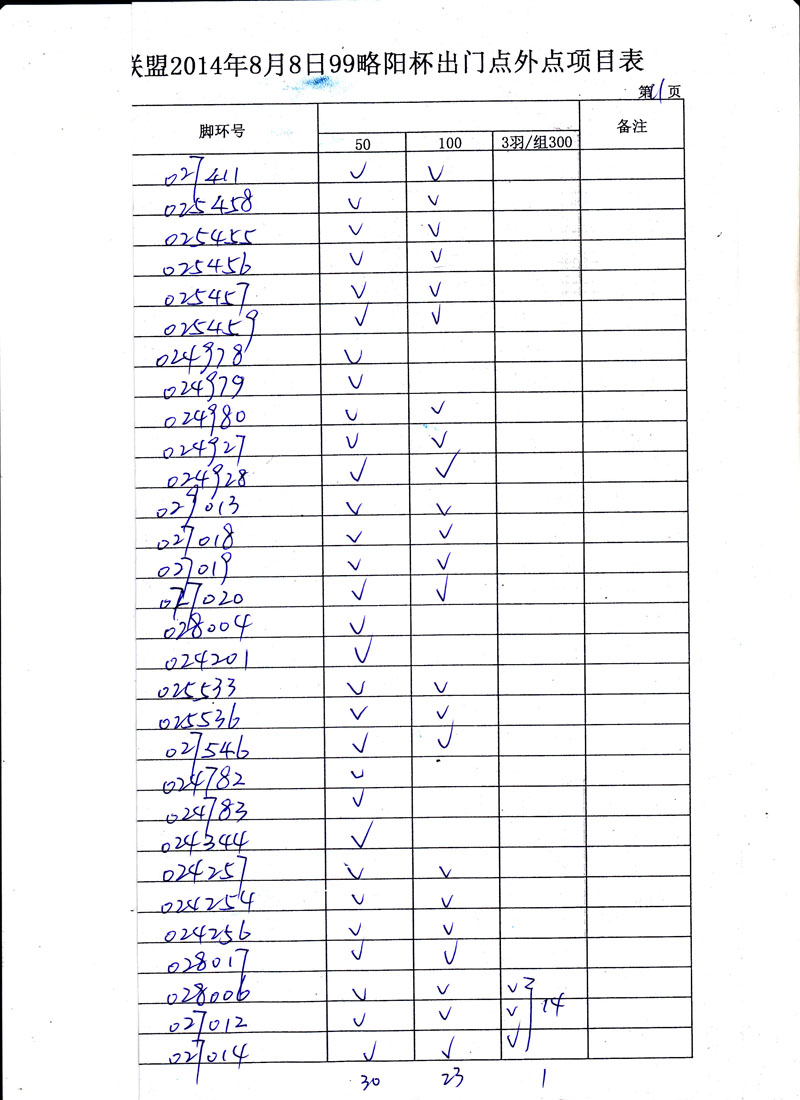 联盟2014年8月8日99略阳杯出门点外点项目表
第11页
脚环号 备注
50 100 3羽/组300
027411 ✓ ✓
025458 ✓ ✓
025455 ✓ ✓
025456 ✓ ✓
025457 ✓ ✓
025459 ✓ ✓
024978 ✓
024979 ✓
024980 ✓ ✓
024927 ✓ ✓
024928 ✓ ✓
029013 ✓ ✓
027018 ✓ ✓
027019 ✓ ✓
027020 ✓ ✓
028004 ✓
024201 ✓
025533 ✓ ✓
025536 ✓ ✓
027546 ✓ ✓
024782 ✓
024783 ✓
024344 ✓
024257 ✓ ✓
024254 ✓ ✓
024256 ✓ ✓
028017 ✓ ✓
028006 ✓ ✓ ✓
027012 ✓ ✓ ✓ 14
027014 ✓ ✓ ✓
30 23 1